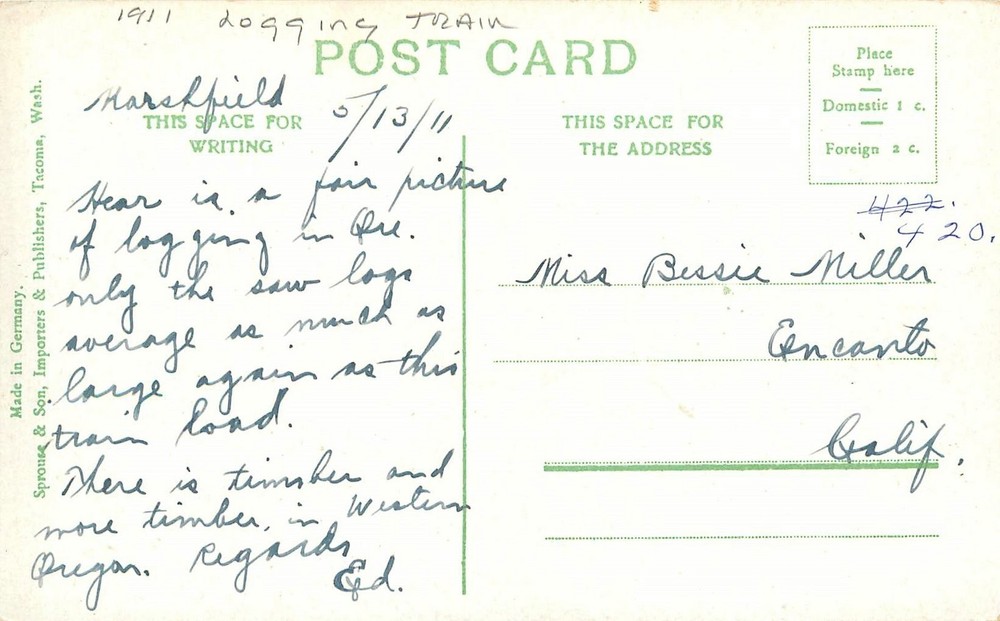 1911 Logging TRAIN
POST CARD
Place
Stamp here
Domestic 1 c.
Foreign 2 c.
Marshfield
5/13/11
THIS SPACE FOR
WRITING
THIS SPACE FOR
THE ADDRESS
Hear is a fair picture
of logging in Ore.
only the saw logs
average as much as
large again as this
train load.
There is timber and
more timber, in Western
Oregon. Regards
Ed.
422.
420.
Miss Bessie Miller
Encanto
Calif.
Made in Germany.
Sprouse & Son, Importers & Publishers, Tacoma, Wash.